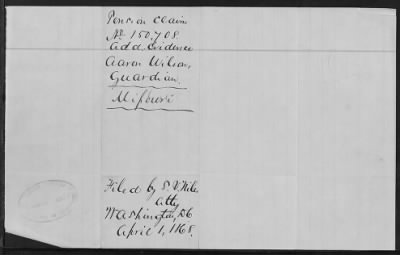 Pension Claim
No 150,708.
Add. Evidence
Aaron Wilson,
Guardian.
Missouri
Filed by S. V.
atty
Washington, DC
April 1, 1868.